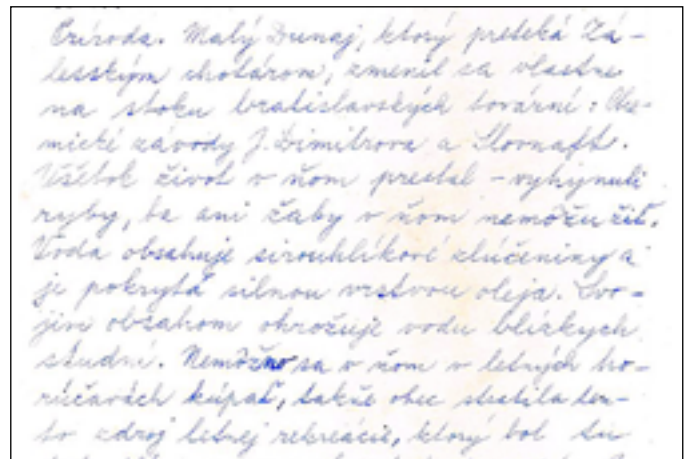 Príroda. Malý Dunaj, ktorý preteká Zá-
lesským chotárom, zmenil sa vlastne
na stoku bratislavských tovární: Che-
mické závody J. Dimitrova a Slovnaft.
Všetok život v ňom prestal - vyhynuli
ryby, ba ani žaby v ňom nemôžu žiť.
Voda obsahuje sirouhlíkové zlúčeniny a
je pokrytá silnou vrstvou oleja. Svo-
jim obsahom ohrožuje vodu blízkych
studní. Nemôžno sa v ňom v letných ho-
rúčavách kúpať, takže obec stratila ten-
to zdroj letnej rekreácie, ktorý bol tu